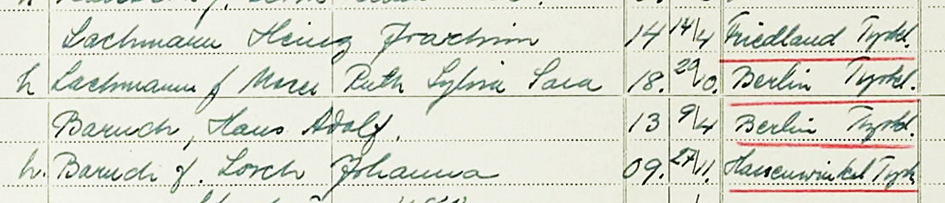 Lachmann Heinz Joachim 14 14/4 Friedland Tyskl.
h Lachmann f Marcu Ruth Sylvia Sara 18. 29/10. Berlin Tyskl.
Baruch, Hans Adolf. 13 9/4 Berlin Tyskl.
h. Baruch f. Lorch Johanna 09. 27/11. Tysk